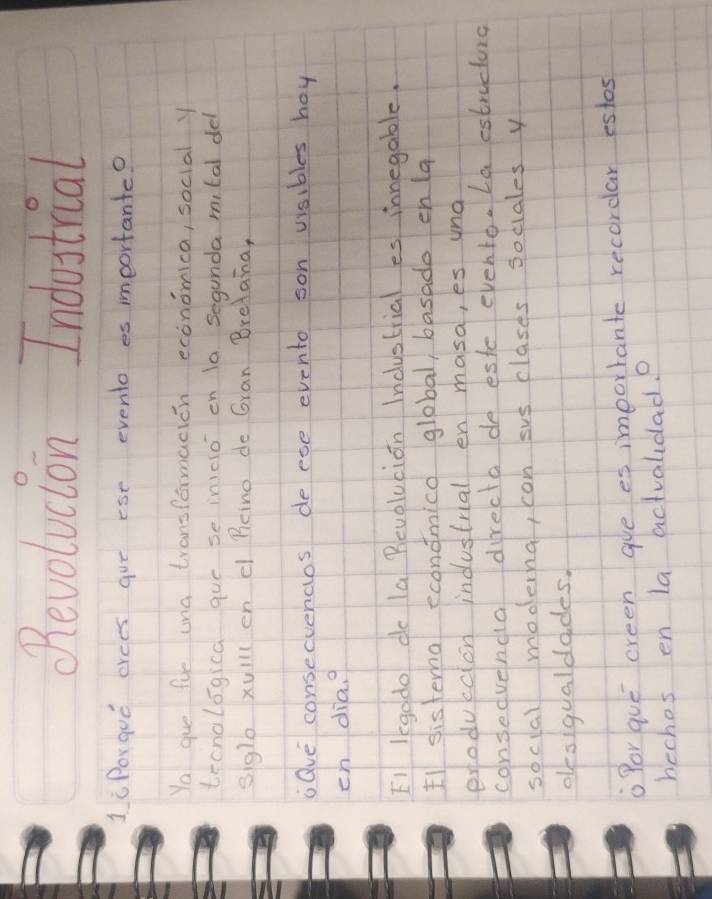 Revolución Industrial
1_¿Porqué crees que ese evento es importante?
Ya que fue una transformación económica, social y
tecnológica que se inició en la segunda mital del
siglo XVIII en el Reino de Gran Bretaña,
¿Qué consecuencias de ese evento son visibles hoy
en día?
El legado de la Revolución Industrial es innegable.
El sistema económico global, basado en la
producción industual en masa, es una
consecuencia directa de este evento. La estructura
social moderna, con sus clases sociales y
desigualdades.
¿Porqué creen que es importante recordar estos
hechos en la actualidad?